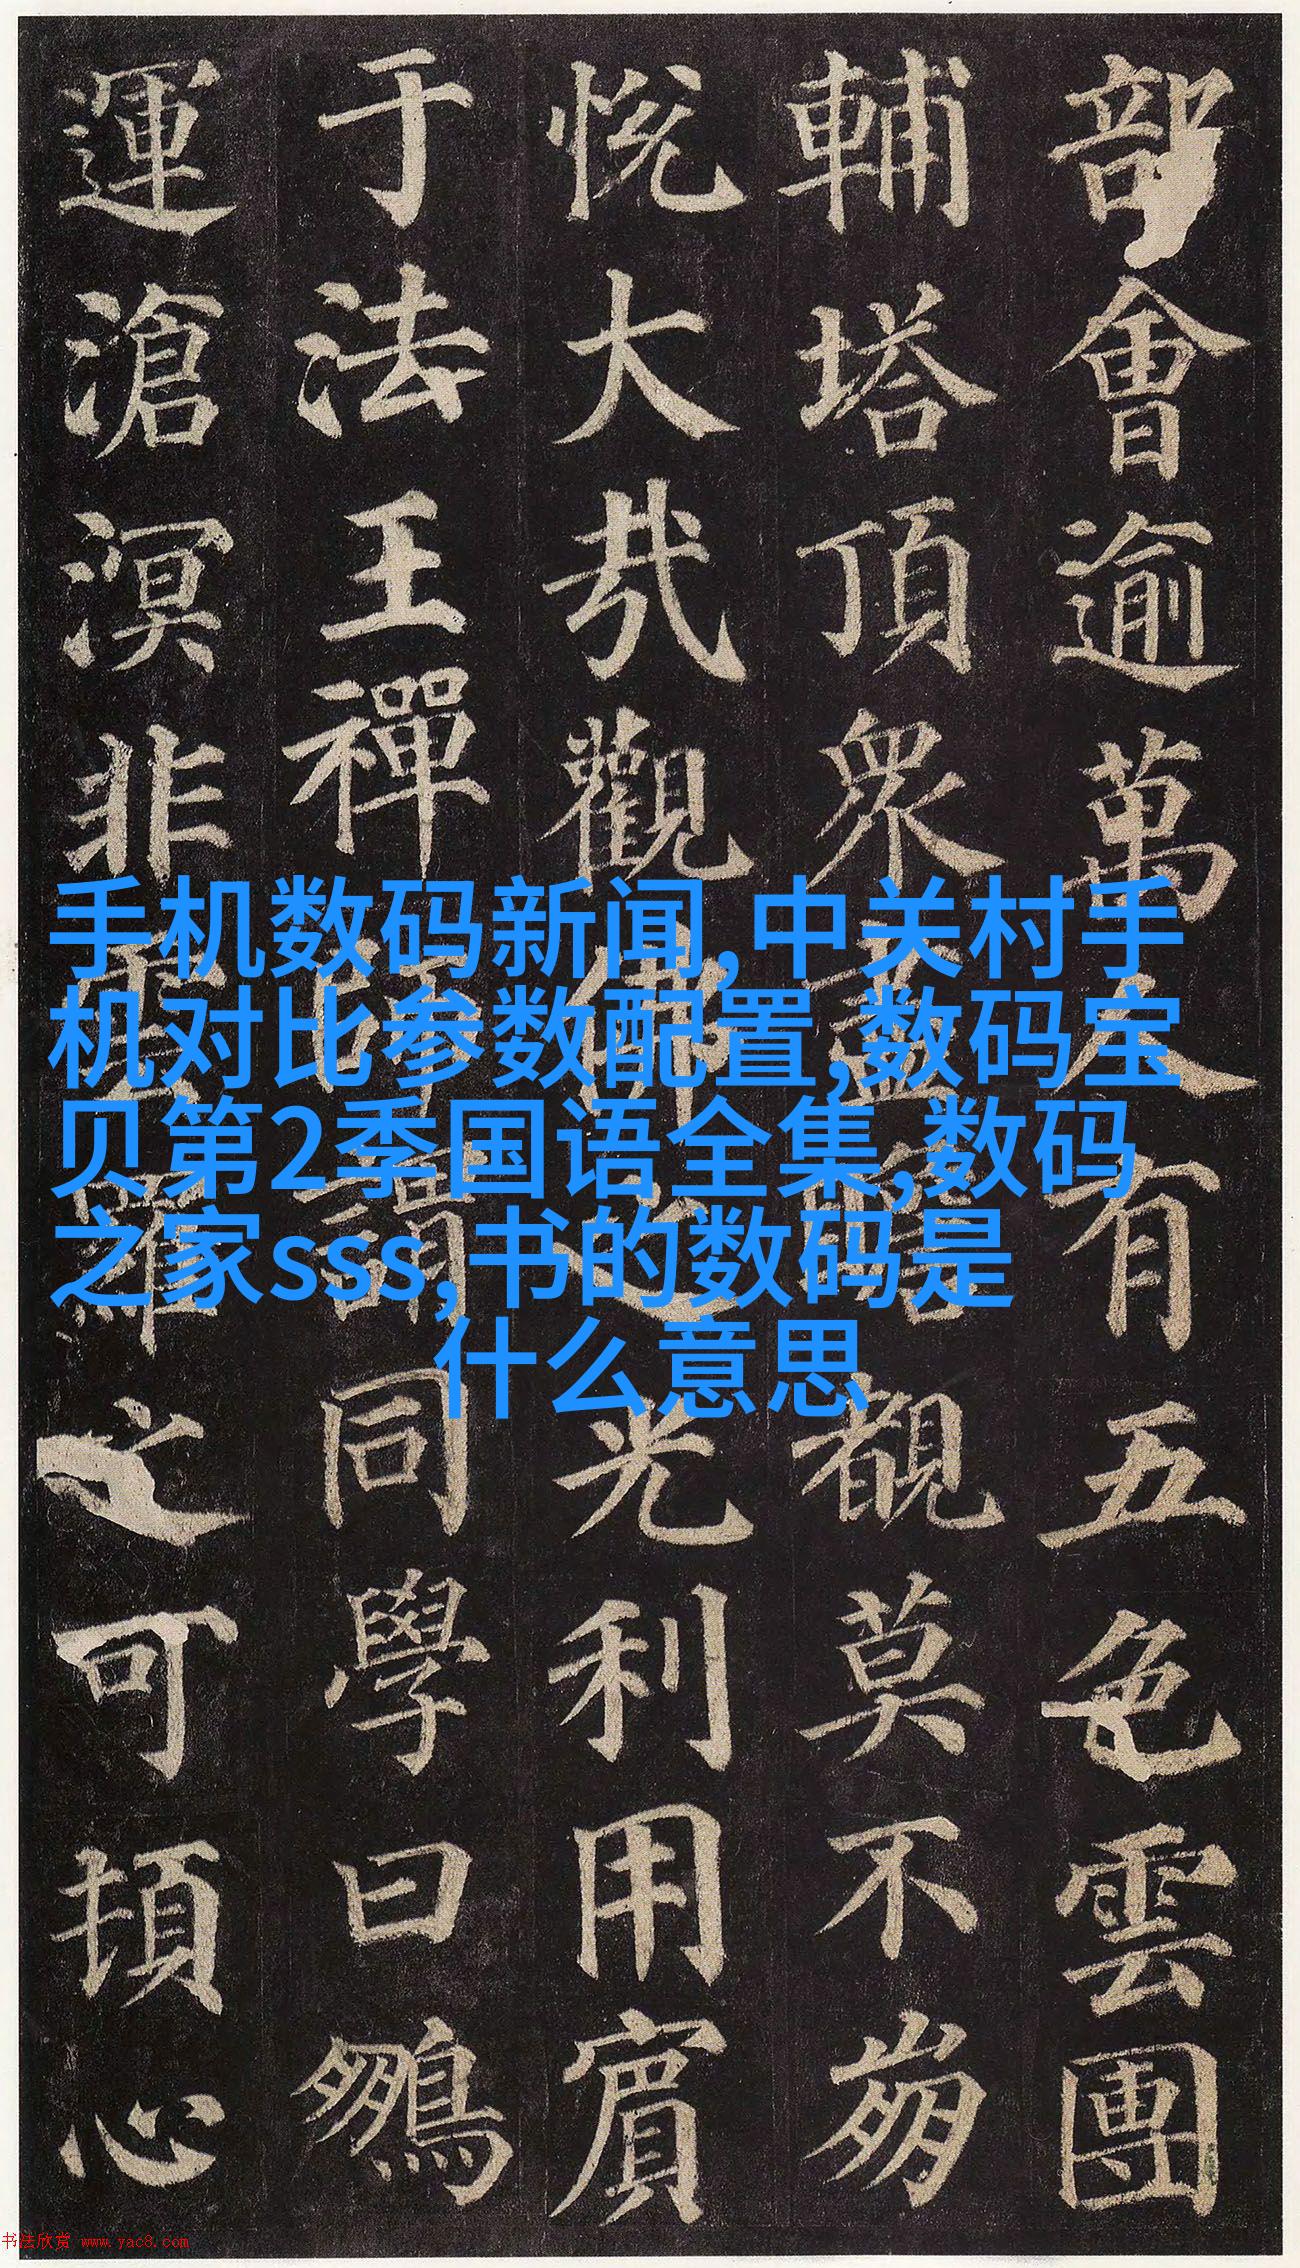 部會逾萬人有五色雲團
輔塔頂眾盡瞻覩莫不崩
悅大哉觀佛之光利用賓
于法王禪師謂同學曰鵬
運滄溟非雲羅之可頓心
手机数码新闻,中关村手
机对比参数配置,数码宝
贝第2季国语全集,数码
之家sss,书的数码是
什么意思
书法欣赏 www.yac8.com